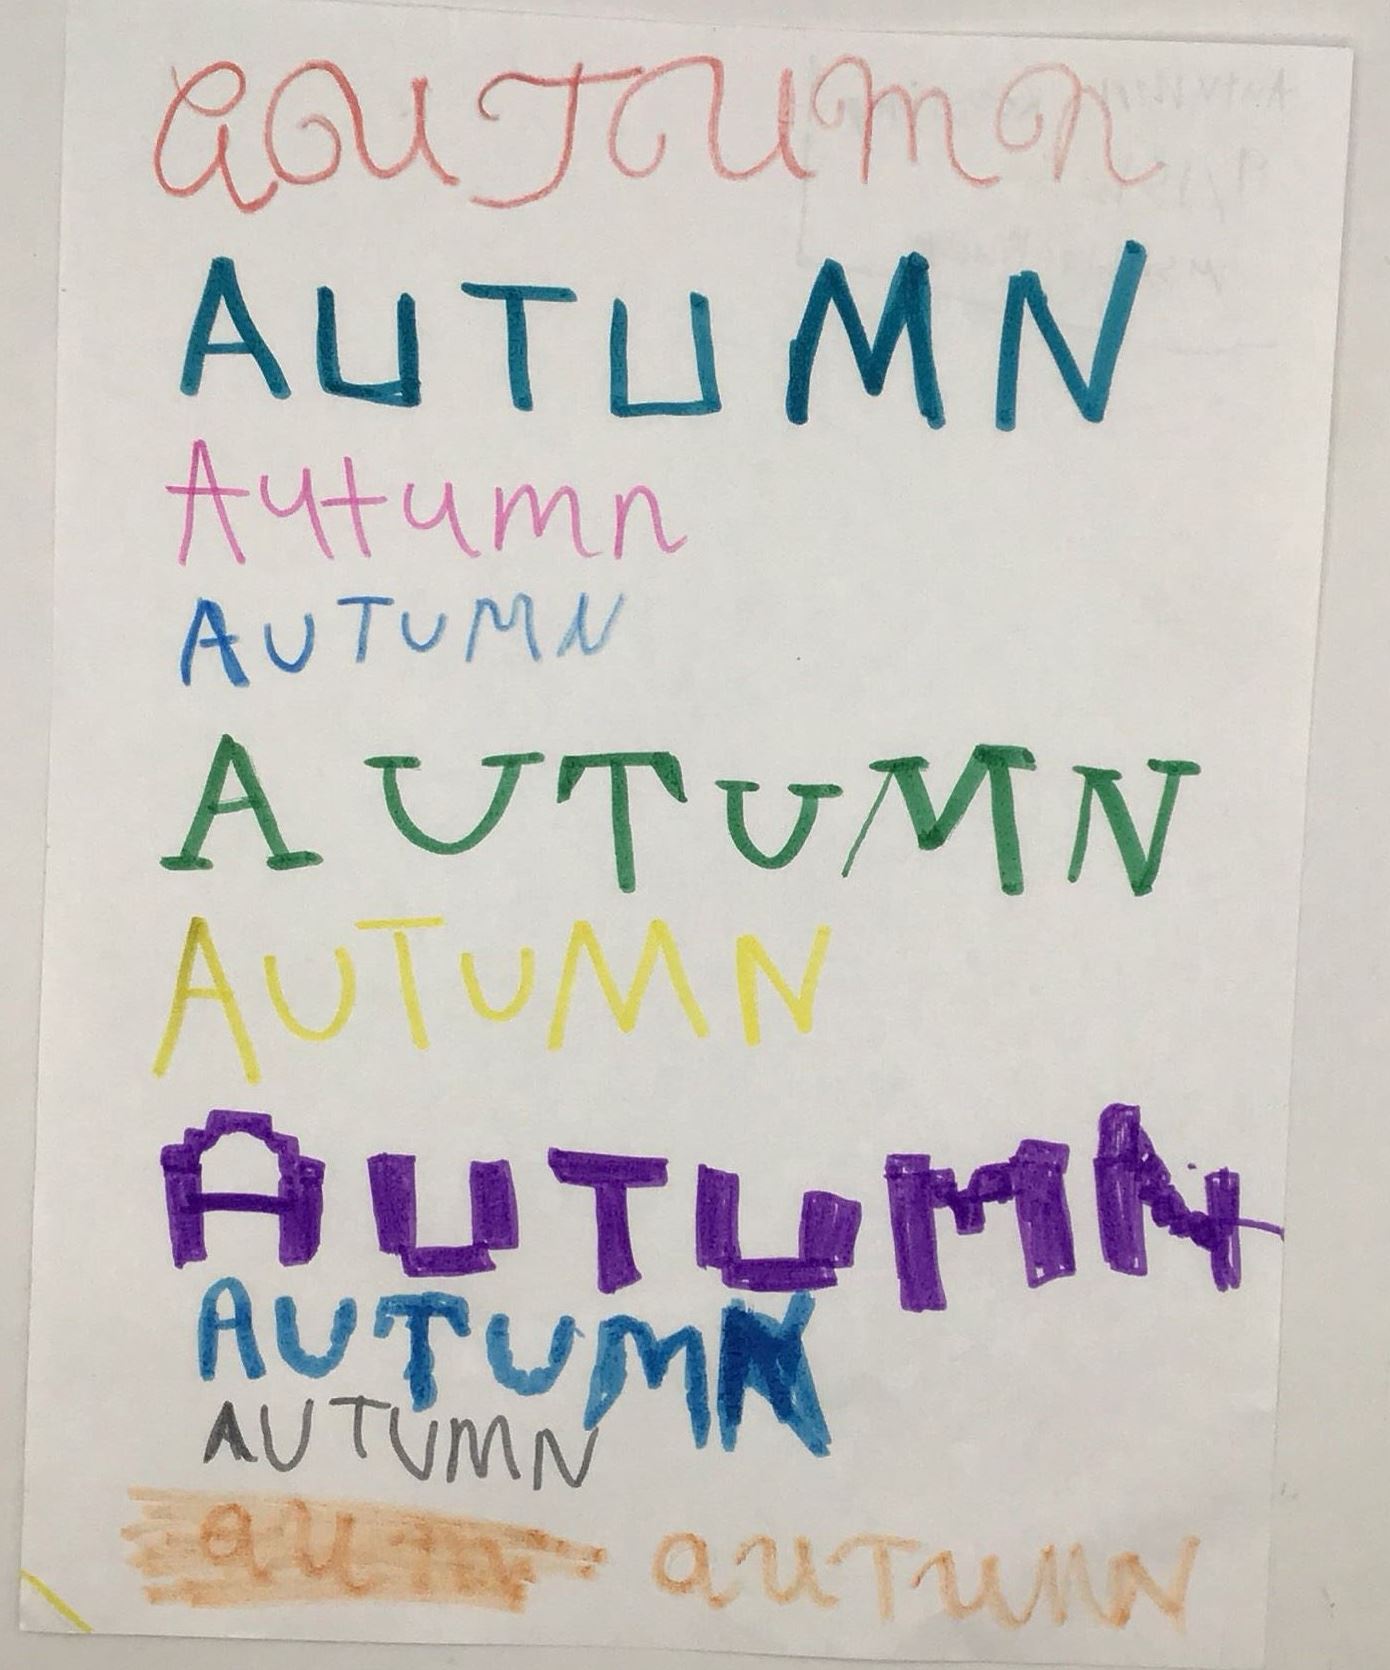 AUTUMN
AUTUMN
Autumn
AUTUMN
AUTUMN
AUTUMN
AUTUMN
AUTUMN
AUTUMN
auTUMN